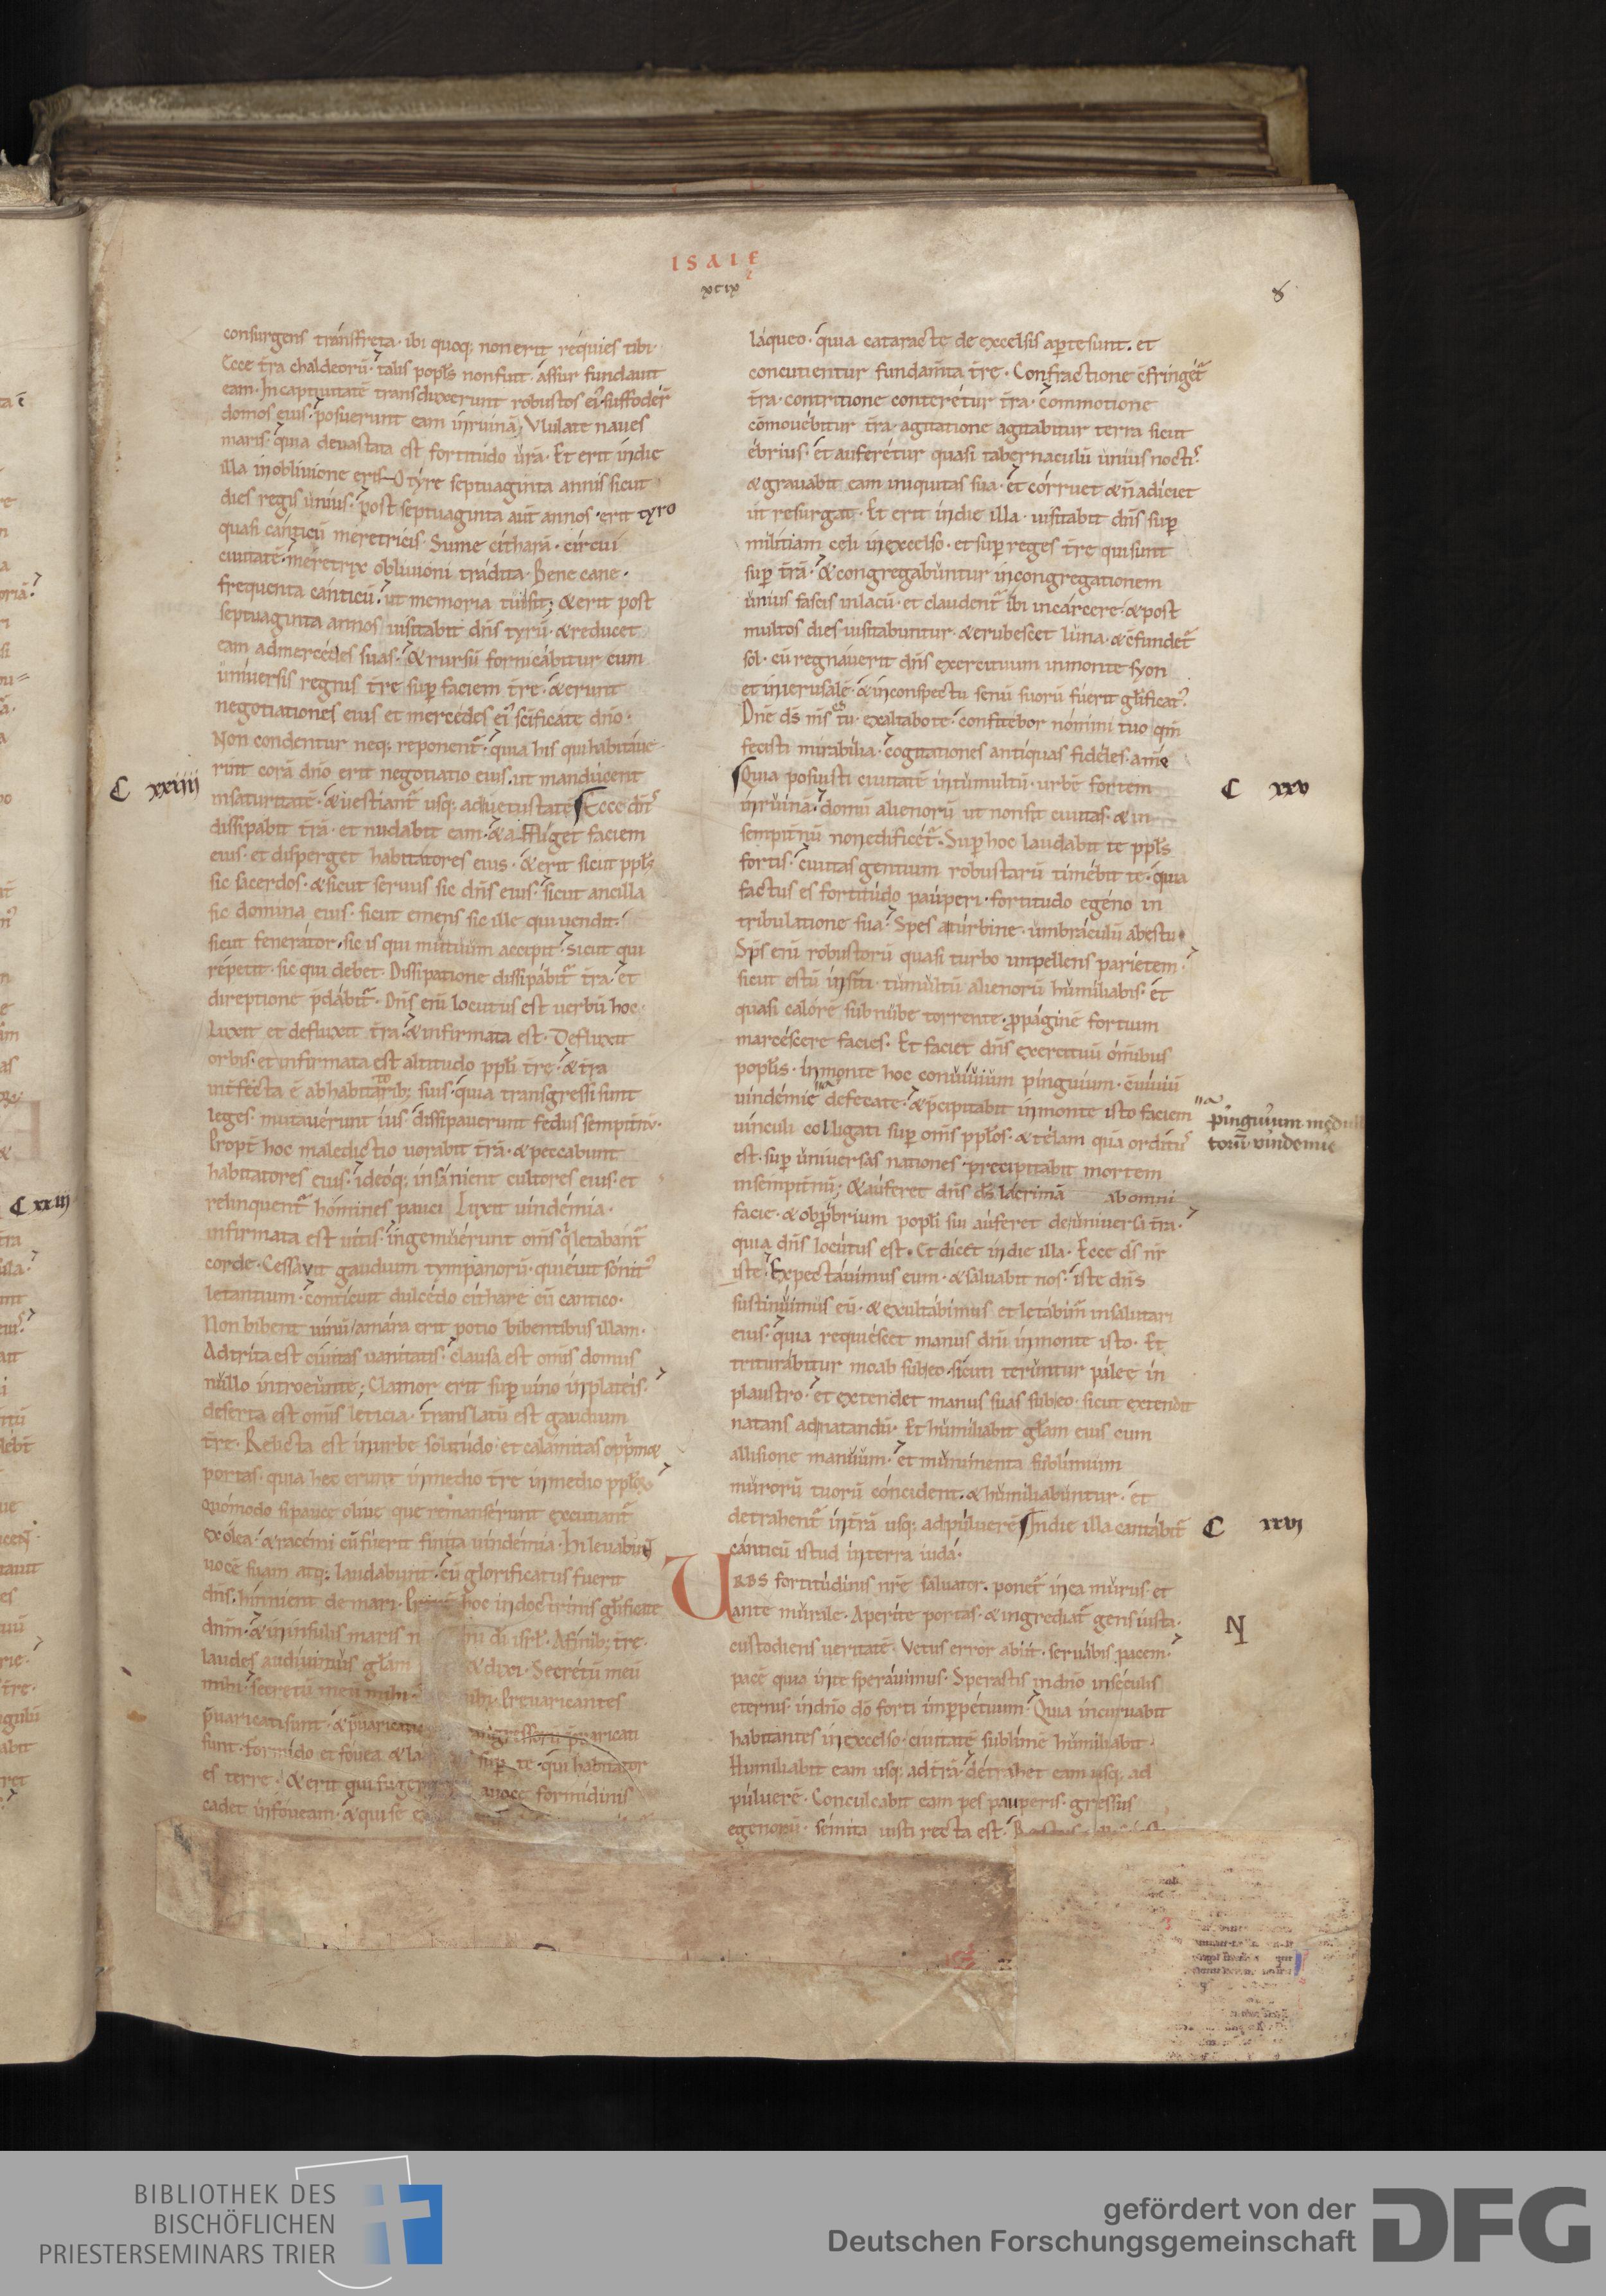 ISAIE
xcix
8
consurgens transfreta · ibi quoq; non erit requies tibi ·
Ecce tr̄a chaldeorū · talis popl̄s non fuit · assur fundavit
eam · In captivitatē transduxerunt robustos ei᾽ · suffoder̄
domos eius · posuerunt eam in ruinā; Vlulate naves
maris · quia devastata est fortitudo ūra · Et erit in die
illa in oblivione eris O tyre septuaginta annis sicut
dies regis unius · post septuaginta aut̄ annos · erit tyro
quasi canticū meretricis · Sume citharā · circui
civitatē · meretrix oblivioni tradita · Bene cane ·
frequenta canticū · ut memoria tui sit; & erit post
septuaginta annos visitabit dn̄s tyrū · & reducet
eam ad mercedes suas · & rursū fornicabitur cum
universis regnis tr̄e sup̄ faciem tr̄e · & erunt
negotiationes eius et mercedes ei᾽ sc̄ificate dn̄o ·
Non condentur neq; reponent̄ · quia his qui habitave
C xxiiii
rint corā dn̄o erit negotiatio eius · ut manducent
in saturitatē · & vestiant̄ usq; ad vetustatē Ecce dn̄s
dissipabit tr̄ā · et nudabit eam · & affliget faciem
eius · et disperget habitatores eius · & erit sicut ppl̄s
sic sacerdos · & sicut servus sic dn̄s eius · sicut ancilla
sic domina eius · sicut emens sic ille qui vendit ·
sicut fenerator · sic is qui mutuum accipit · Sicut qui
repetit · sic qui debet · Dissipatione dissipabit̄ tr̄a · et
direptione p̄dabit̄ · Dn̄s enī locutus est verbū hoc ·
Luxit et defluxit tr̄a · & infirmata est · Defluxit
orbis · et infirmata est altitudo ppl̄i tr̄e · & tr̄a
interfecta ē ab habitatorib; suis · quia transgressi sunt
leges · mutaverunt ius · dissipaverunt fedus sempitn̄ū ·
Propt̄ hoc maledictio vorabit tr̄ā · & peccabunt
habitatores eius · ideoq; insanient cultores eius · et
relinquent̄ homines pauci Luxit vindemia ·
infirmata est vitis · ingemuerunt om̄s q̄ letabant̄
corde · Cessavit gaudium tympanorū · quievit sonit᾽
letantium · conticuit dulcedo cithare cū cantico ·
Non bibent vinū / amara erit potio bibentibus illam ·
Adtrita est civitas vanitatis · clausa est om̄is domus
nullo introeunte; Clamor erit sup̄ vino in plateis ·
deserta est om̄is leticia · translatū est gaudium
tr̄e · Relicta est in urbe solitudo · et calamitas opprimet
portas · quia hec erunt in medio tr̄e in medio pplōꝝ
Quomodo si pauce olive que remanserunt excutiant̄
ex olea · & racemi cū fuerit finita vindemia · Hi levabunt
vocē suam atq; laudabunt · cū glorificatus fuerit
dn̄s · hinnient de mari · hoc in doctrinis gl̄ificate
dn̄m · & in insulis maris n di isrl̄ · A finib; tr̄e ·
laudes audivimus gl̄am & dixi · Secretū meū
mihi · secretū meū mihi · ihi · Prevaricantes
p̄varicati sunt · & p̄varicatio p̄varicati
sunt · Formido et fovea & la sup̄ te · qui habitator
es terre · & erit qui fugerit a voce formidinis
cadet in foveam · & qui se
laqueo · quia cataracte de excelsis apte sunt · et
concutientur fundam̄ta tr̄e · Confractione c̄fringet̄
tr̄a · contritione conteretur tr̄a · commotione
cōmovebitur tr̄a · agitatione agitabitur terra sicut
ebrius · et auferetur quasi tabernaculū unius noctis
& gravabit eam iniquitas sua · et corruet & n̄ adiciet
ut resurgat · Et erit in die illa · visitabit dn̄s sup̄
militiam celi in excelso · et sup̄ reges tr̄e qui sunt
sup̄ tr̄ā · & congregabuntur in congregationem
unius fascis in lacū · et claudent̄ ibi in carcere · & post
multos dies visitabuntur · & erubescet luna · & c̄fundet̄
sol · cū regnaverit dn̄s exercituum in monte syon
et in ierusalē · & in conspectu senū suorū fuerit gl̄ificat᾽
Dn̄e ds̄ m̄s es tu · exaltabo te · confitebor nomini tuo qm̄
fecisti mirabilia · cogitationes antiquas fideles · amē
Quia posuisti civitatē in tumultū · urbē fortem
C xxv
in ruinā · domū alienorū ut non sit civitas · & in
sempitn̄ū non edificet̄ · Sup̄ hoc laudabit te ppl̄s
fortis · civitas gentium robustarū timebit te · quia
factus es fortitudo pauperi · fortitudo egeno in
tribulatione sua · Spes a turbine · umbraculū ab estu ·
Sp̄s enī robustorū quasi turbo impellens parietem ·
sicut estū in siti · tumultū alienorū humiliabis · et
quasi calore sub nube torrente · p̄paginē fortium
marcescere facies · Et faciet dn̄s exercituū om̄ibus
popl̄is · in monte hoc convivium pinguium · c̄viviū
vindemie defecate · & p̄cipitabit in monte isto faciem
pinguium medulla
torū · vindemie
vinculi colligati sup̄ om̄s ppl̄os · & telam quā ordit᾽
est · sup̄ universas nationes · precipitabit mortem
in sempitn̄ū; & auferet dn̄s ds̄ lacrimā ab omni
facie · & obp̄brium popl̄i sui auferet de universa tr̄a ·
quia dn̄s locutus est · Et dicet in die illa · Ecce ds̄ nr̄
iste · Expectavimus eum · & salvabit nos · iste dn̄s
sustinuimus eū · & exultabimus et letabim̄ in salutari
eius · quia requiescet manus dn̄i in monte isto · Et
triturabitur moab sub eo · sicuti teruntur palee in
plaustro · et extendet manus suas sub eo · sicut extendit
natans ad natandū · Et humiliabit gl̄am eius cum
allisione manuum · et munimenta sublimium
murorū tuorū concident · & humiliabuntur · et
detrahent̄ in tr̄ā usq; ad pulverē In die illa cantabit̄
C xxvi
canticū istud in terra iuda ·
URBS fortitudinis nr̄e salvator · ponet̄ in ea murus et
ante murale · Aperite portas · & ingrediat̄ gens iusta ·
N
custodiens veritatē · Vetus error abiit · servabis pacem ·
pacē quia in te speravimus · Sperastis in dn̄o in seculis
eternis · in dn̄o dō forti in p̄petuum · Quia incurvabit
habitantes in excelso · civitatē sublimē humiliabit ·
Humiliabit eam usq; ad tr̄ā · detrahet eam usq; ad
pulverē · Conculcabit eam pes pauperis · gressus
egenorū · semita iusti recta est ·
C xxiii
BIBLIOTHEK DES
BISCHÖFLICHEN
PRIESTERSEMINARS TRIER
gefördert von der
Deutschen Forschungsgemeinschaft
DFG